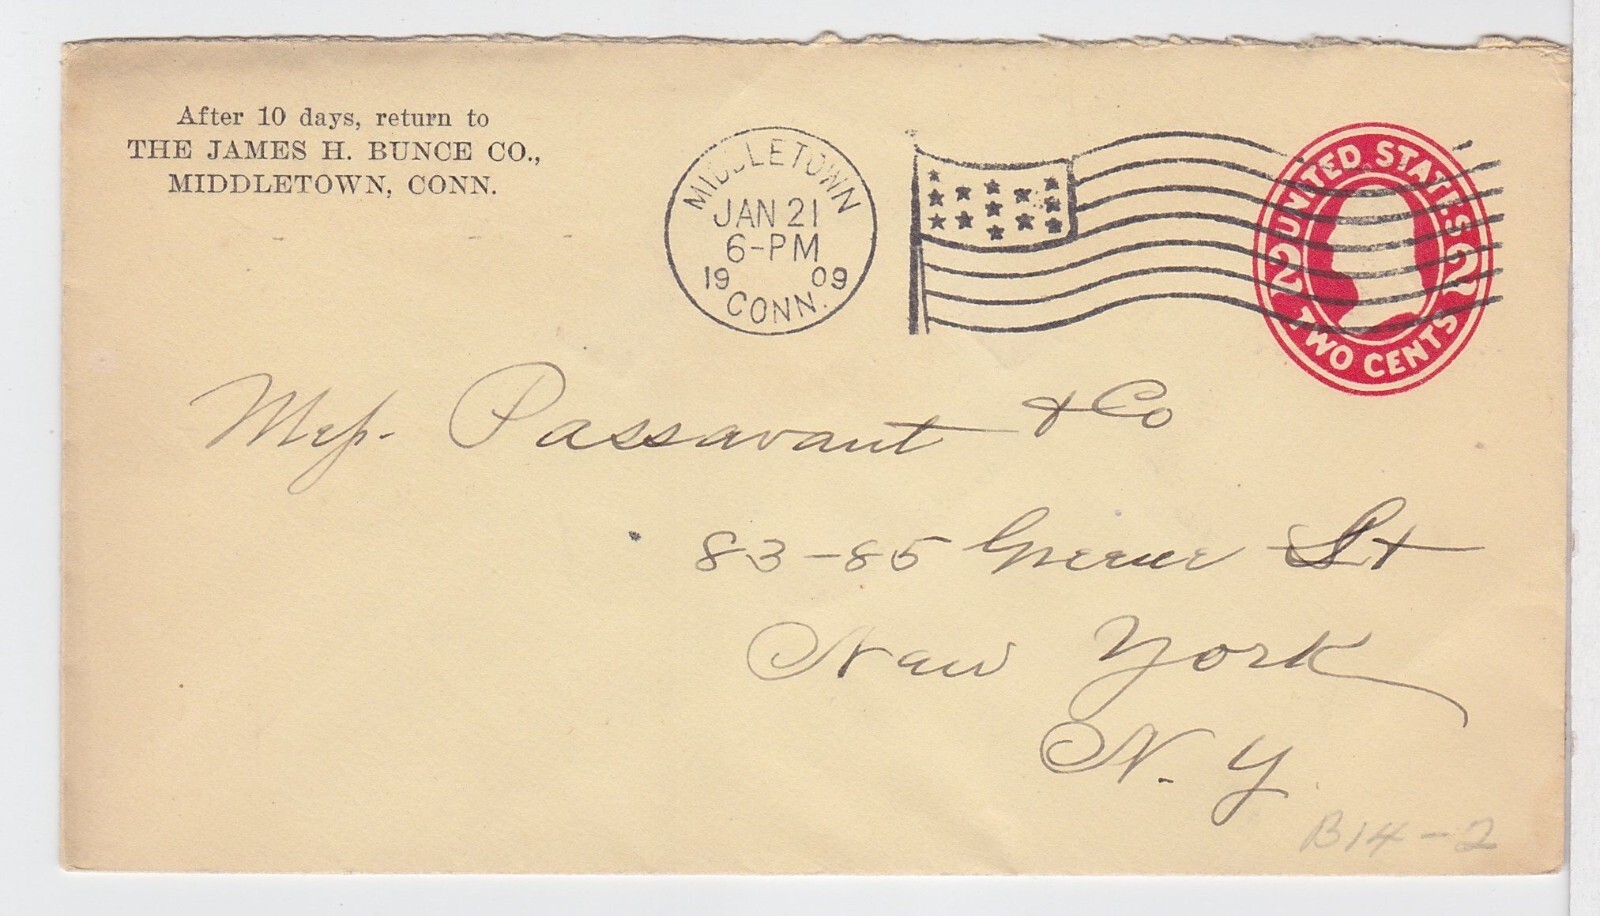 After 10 days, return to
THE JAMES H. BUNCE CO.,
MIDDLETOWN, CONN.
MIDDLETOWN
JAN 21
6-PM
1909
CONN.
UNITED STATES
2 2
TWO CENTS
Mess. Passavant & Co
83-85 Greene St
New York
N. Y.
B14-2